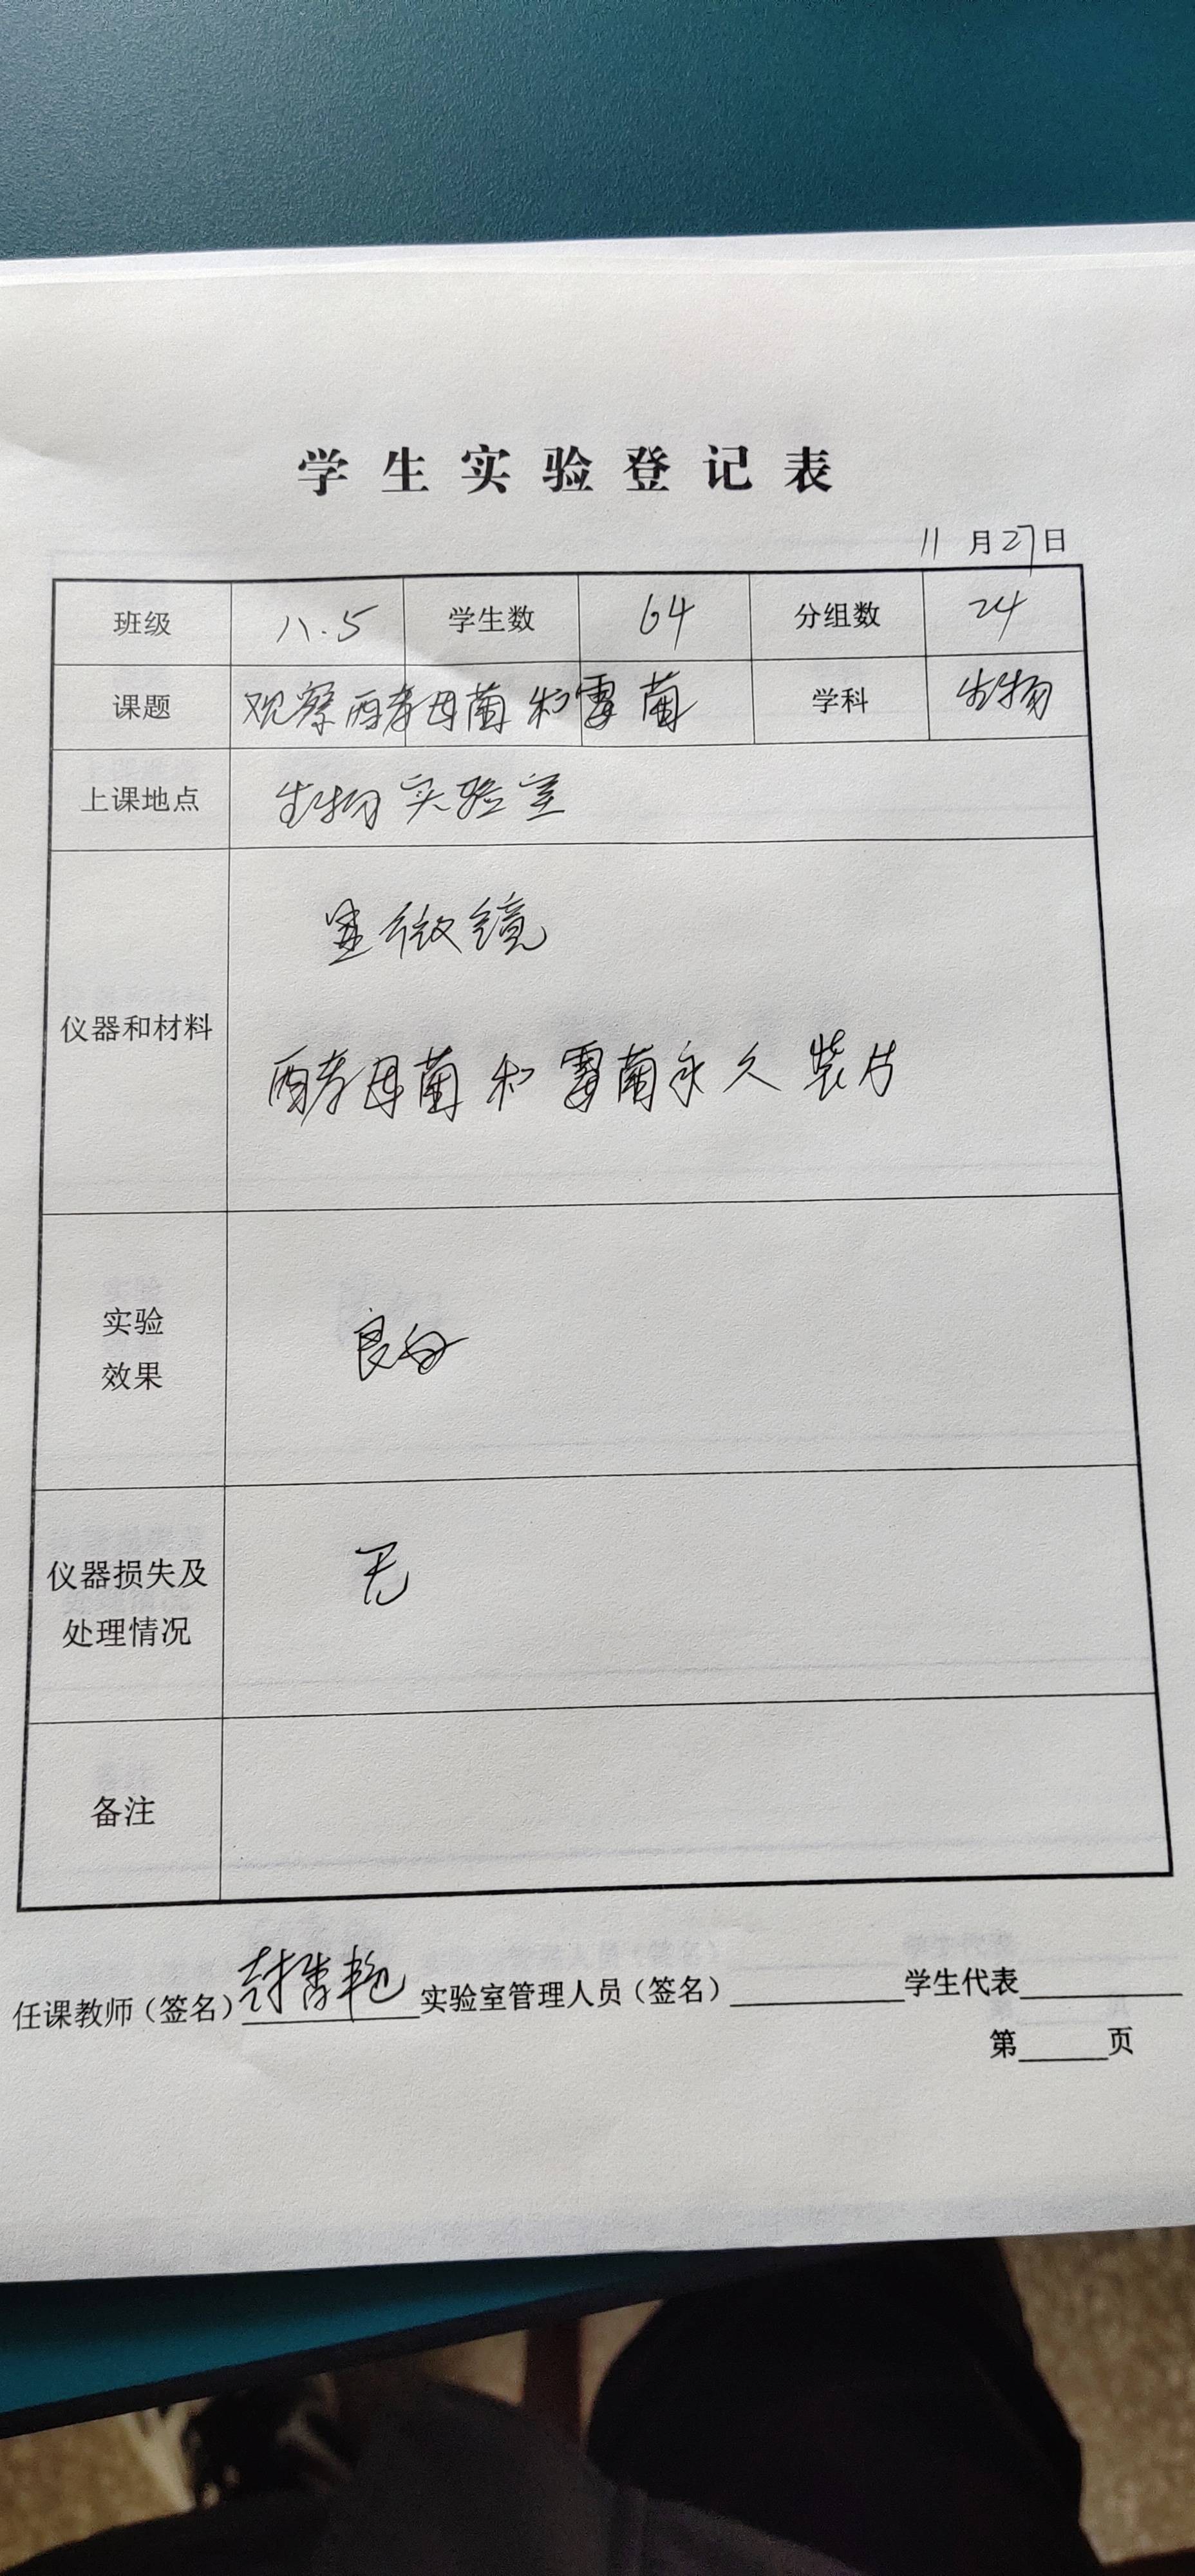 学生实验登记表
11月27日
班级 八.5 学生数 64 分组数 24
课题 观察酵母菌和霉菌 学科 生物
上课地点 生物实验室
显微镜
仪器和材料
酵母菌和霉菌永久装片
实验
效果
良好
仪器损失及
处理情况
无
备注
任课教师（签名） 实验室管理人员（签名） 学生代表
第 页